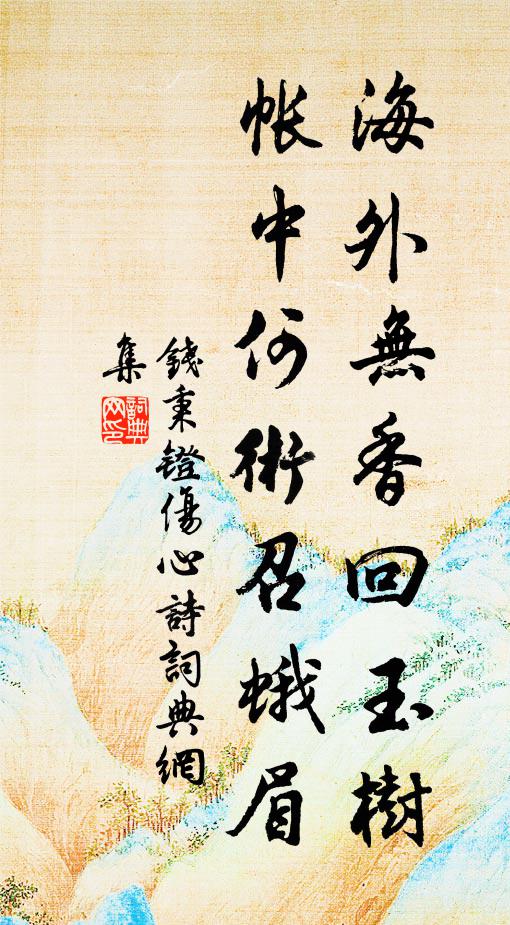 海外無香回玉樹
帳中何術召蛾眉
錢秉鐙傷心詩詞典網
集
詞典網印